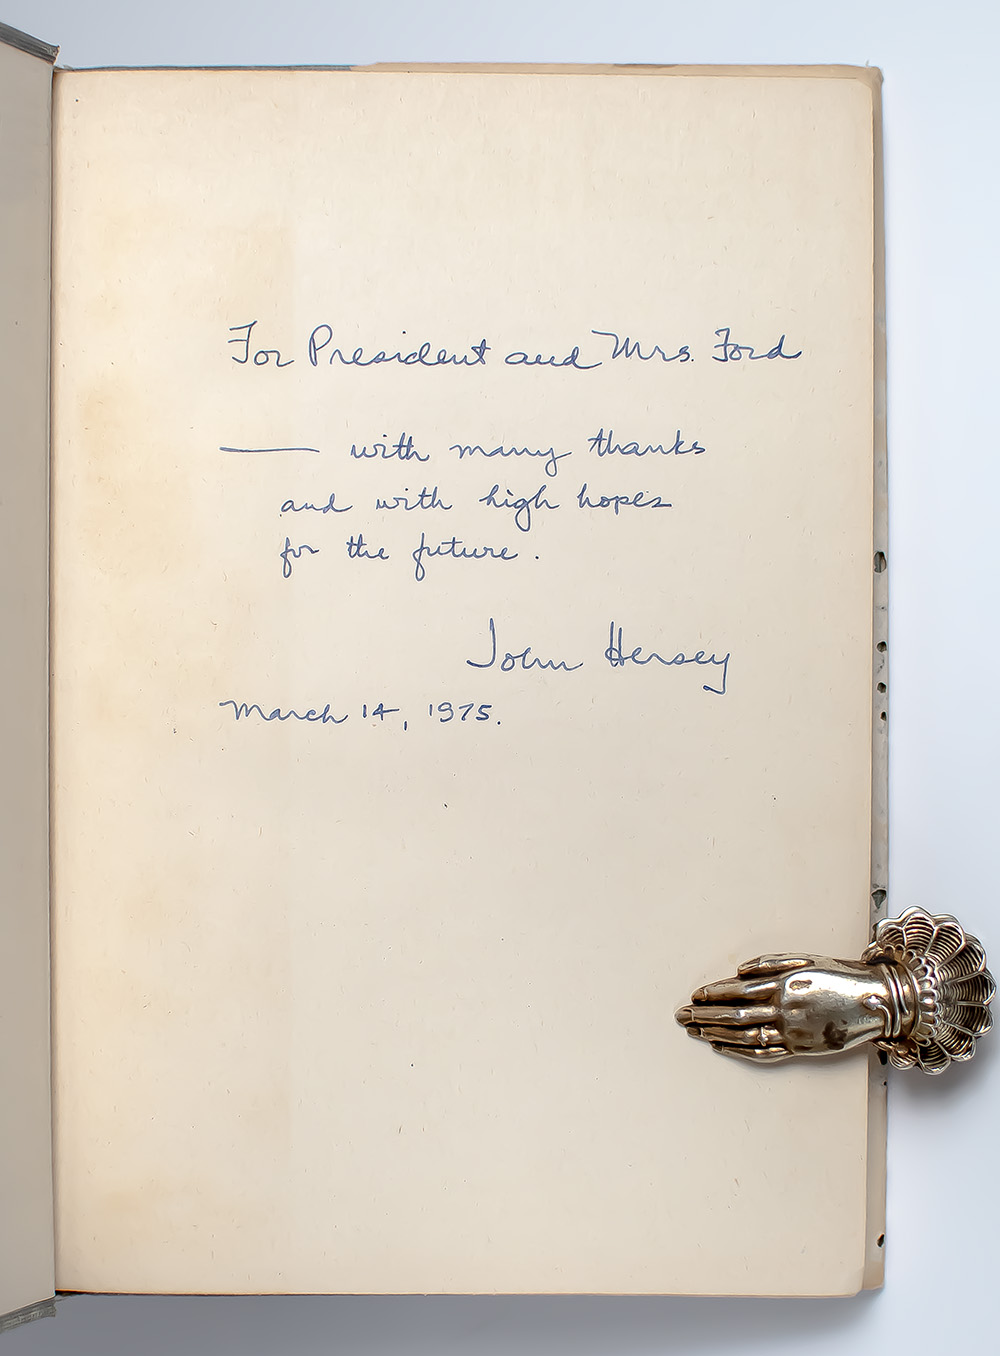 For President and Mrs. Ford
— with many thanks
and with high hopes
for the future.
John Hersey
March 14, 1975.